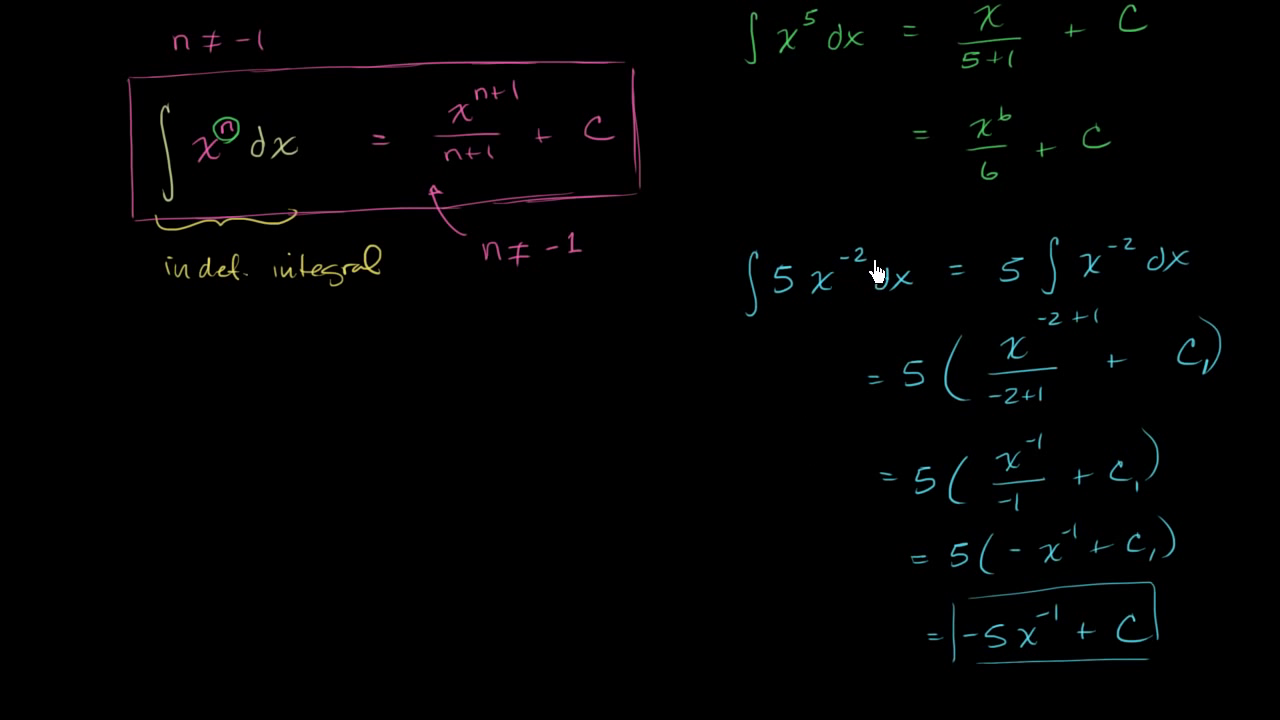 n ≠ -1
∫ xⁿ dx = xⁿ⁺¹/(n+1) + C
n ≠ -1
indef. integral
∫ x⁵ dx = x/(5+1) + C
= x⁶/6 + C
∫ 5 x⁻² dx = 5 ∫ x⁻² dx
= 5 ( x⁻²⁺¹/(-2+1) + C₁)
= 5 ( x⁻¹/-1 + C₁)
= 5 (- x⁻¹ + C₁)
= -5x⁻¹ + C